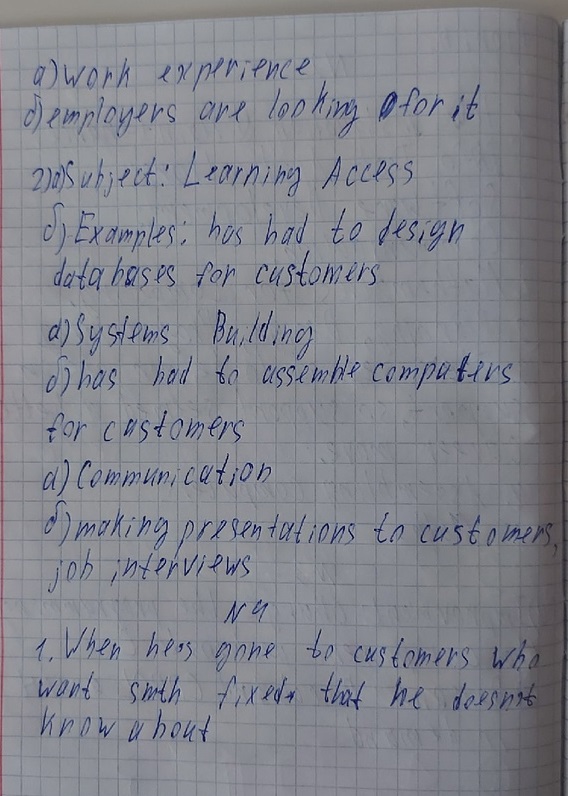 а) work experience
б) employers are looking for it
2) а) Subject: Learning Access
б) Examples: has had to design
databases for customers
а) Systems Building
б) has had to assemble computers
for customers
а) Communication
б) making presentations to customers,
job interviews
N4
1. When he's gone to customers who
want smth fixed that he doesn't
know about